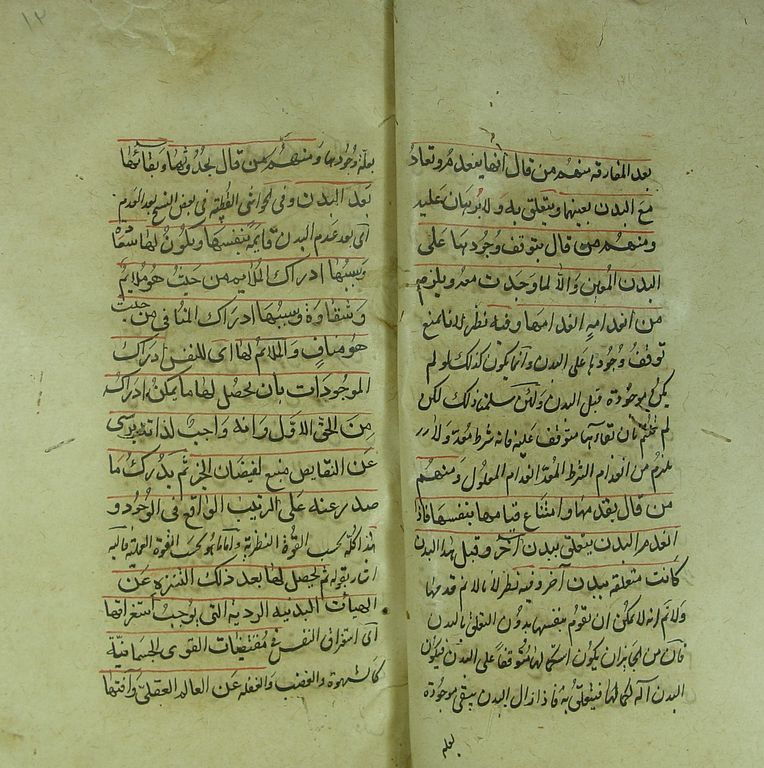 بعد المفارقة منهم من قال انها ينعدم وتعاد
مع البدن بعينها ويتعلق به ولا برهان عليه
ومنهم من قال بتوقف وجودها على
البدن المعين والا لما وجدت معه ويلزم
من انعدامه انعدامها وفيه نظر لانا نمنع
توقف وجودها على البدن وانما يكون كذلك لو لم
يكن موجودة قبل البدن ولئن سلمنا ذلك لكن
لم قلتم بان بقاءها متوقف عليه فانه شرط معد ولا
يلزم من انعدام الشرط المعد انعدام المعلول ومنهم
من قال بقدمها وامتناع قيامها بنفسها فاذا
انعدم البدن يتعلق ببدن آخر وقبل هذا البدن
كانت متعلقة ببدن آخر وفيه نظر لانا لا نم قدمها
ولا نم انه لا يمكن ان تقوم بنفسها بدون التعلق بالبدن
فان من الجايز ان يكون استكمالها متوقفا على البدن فيكون
البدن آلة لكمالها فيتعلق به فاذا زال البدن يبقى موجودة
بعلة
١٢
بعلة وجودها ومنهم من قال بحدوثها وبقائها
بعد البدن وفي الحواشي القطبية في بعض النسخ بعد العدم
اى بعد عدم البدن قايمة بنفسها ويكون لها سعادة
وسببها ادراك الملايم من حيث هو ملايم
وشقاوة وسببها ادراك المنافى من حيث
هو مناف والملائم لها اى للنفس ادراك
الموجودات بان يحصل لها ما يمكن ادراك
من الحق الاول وانه واجب لذاته برئ
عن النقايص منبع لفيضان الخير ثم يدرك ما
صدر عنه على الترتيب الواقع فى الوجود و
هذا كله بحسب القوة النظرية واما ما هو بحسب القوة العملية فاليه
اشار بقوله ثم يحصل لها بعد ذلك التنزه عن
الهيأت البدنيه الرديه التى يوجب استغراقها
اى استغراق النفس فى مقتضيات القوى الجسمانية
كالشهوة والغضب والغفلة عن العالم العقلى وآفتها